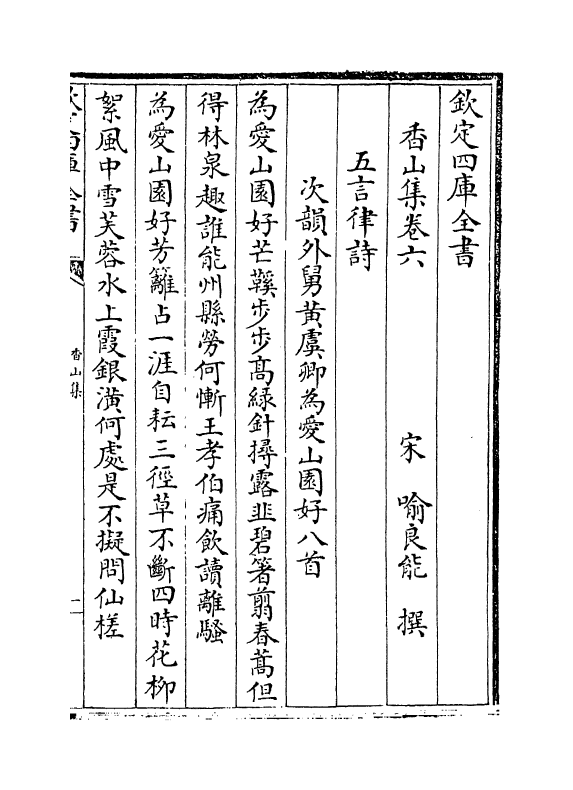 欽定四庫全書
香山集卷六
宋 喻良能 撰
五言律詩
次韻外舅黄虞卿為愛山園好八首
為愛山園好芒鞵步步髙緑針撏露韭碧箸翦春蒿但
得林泉趣誰能州縣勞何慚王孝伯痛飲讀離騷
為愛山園好芳籬占一涯自耘三徑草不斷四時花柳
絮風中雪芙蓉水上霞銀潢何處是不擬問仙槎
香山集